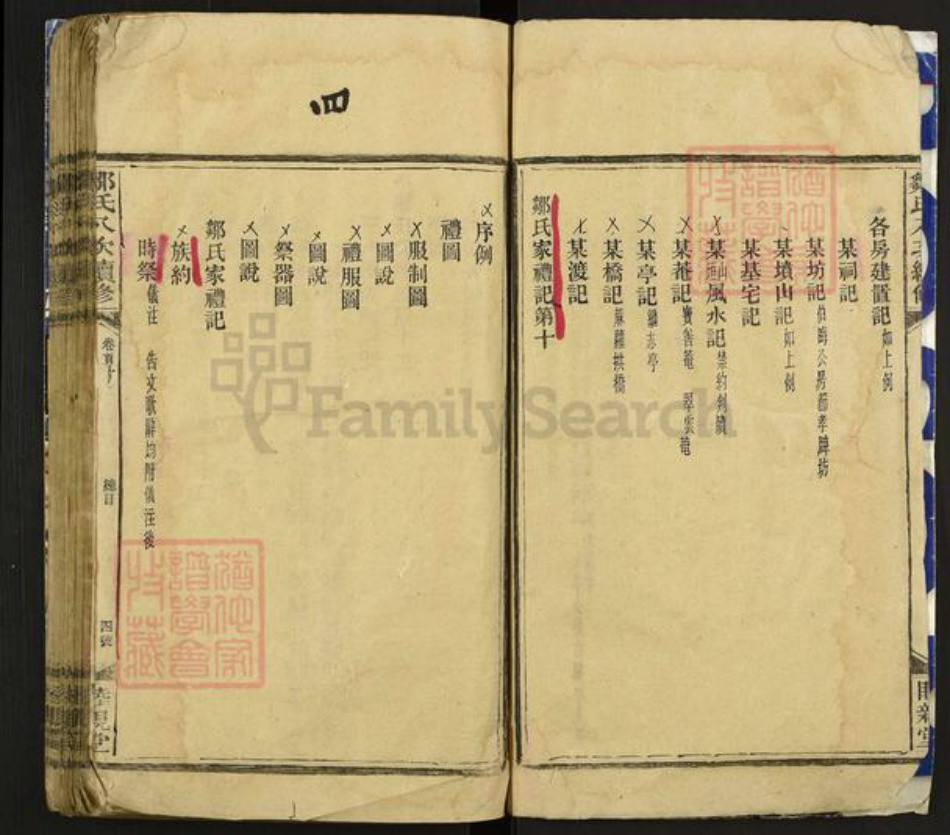 各房建置記如上例
某祠記
某坊記
某墳山記如上例
某基宅記
某山風水記禁約刻牘
某菴記寶善菴 翠雲菴
某亭記
某橋記
某渡記
鄒氏家禮記第十
序例
禮圖
服制圖
圖說
禮服圖
圖說
祭器圖
圖說
鄒氏家禮記
族約
時祭儀注 告文歌辭均附儀注後
鄒氏八次續修
卷首
總目
四號
四
FamilySearch
譜學會